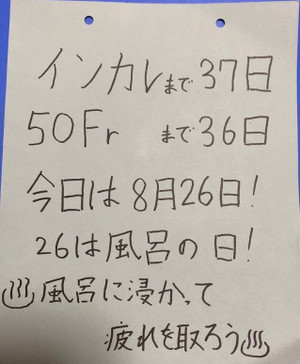 インカレまで37日
50Fr まで36日
今日は8月26日!
26は風呂の日!
♨風呂に浸かって
疲れを取ろう♨